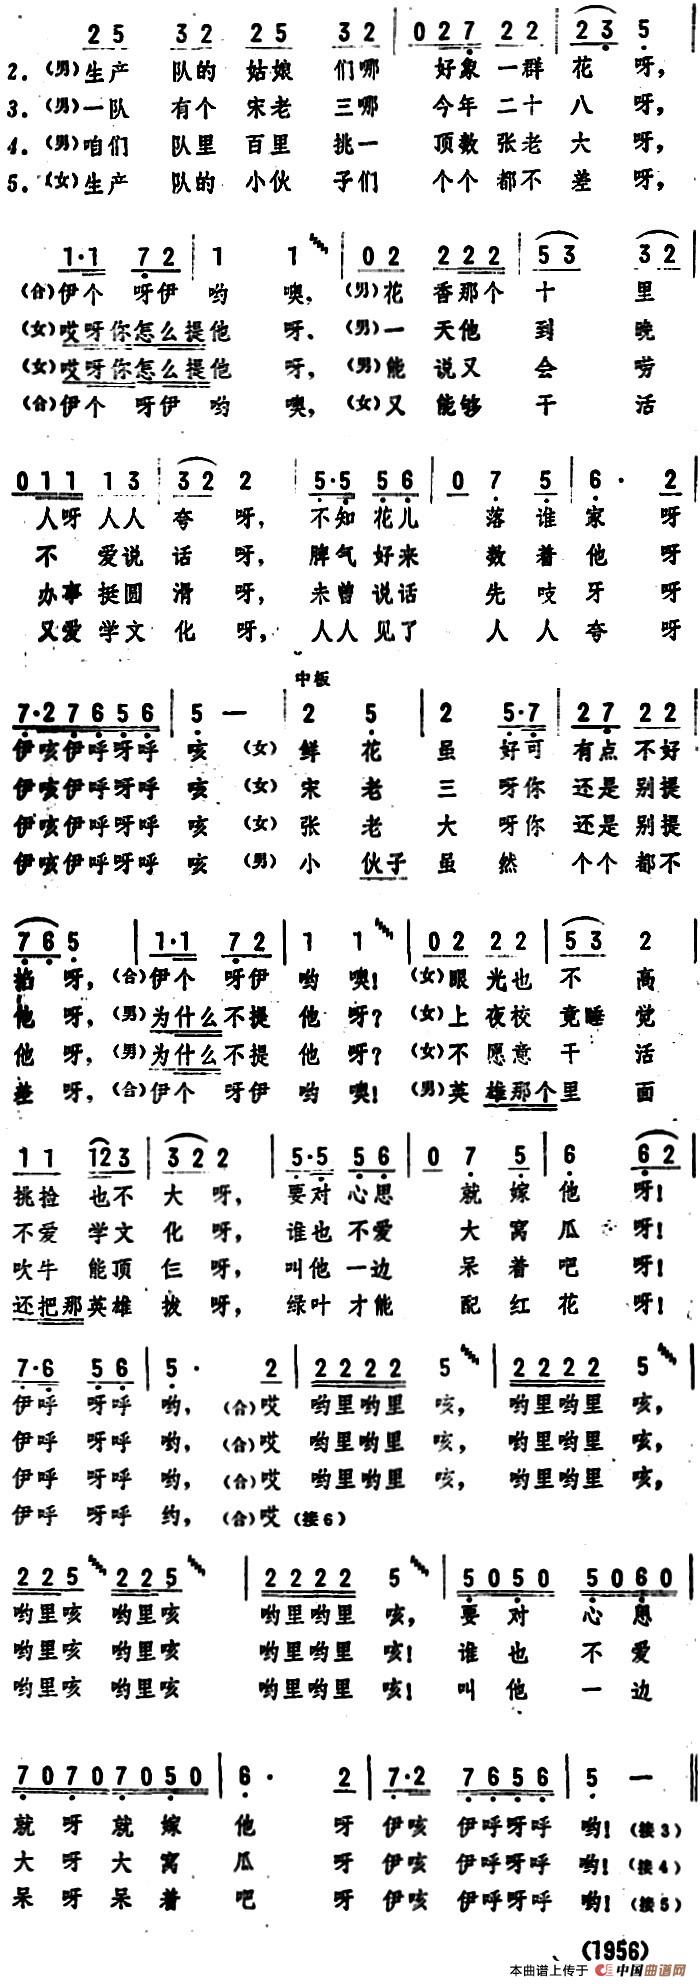 2 5 3 2 2 5 3 2 | 0 2 2 7 2 2 | 2 3 5
2.(男)生产 队的 姑娘 们哪 好象一群 花 呀,
3.(男)一队 有个 宋老 三哪 今年二十 八 呀,
4.(男)咱们 队里 百里 挑一 顶数张老 大 呀,
5.(女)生产 队的 小伙 子们 个个都不 差 呀,
1·1 7 2 | 1 1 | 0 2 2 2 2 | 5 3 3 2
(合)伊个 呀伊 哟 噢, (男)花 香那个 十 里
(女)哎呀你怎么提他 呀. (男)一 天他 到 晚
(女)哎呀你怎么提他 呀, (男)能 说又 会 唠
(合)伊个 呀伊 哟 噢, (女)又 能够 干 活
0 1 1 1 3 | 3 2 2 | 5·5 5 6 | 0 7 5 | 6· 2
人呀 人人 夸 呀, 不知 花儿 落 谁 家 呀
不 爱说 话 呀, 脾气 好来 数 着 他 呀
办事 挺圆 滑 呀, 未曾 说话 先 吱 牙 呀
又爱 学文 化 呀, 人人 见了 人 人 夸 呀
中板
7·2 7 6 5 6 | 5 — | 2 5 | 2 5·7 | 2 7 2 2
伊咳伊呼呀呼 咳 (女)鲜 花 虽 好可 有点 不好
伊咳伊呼呀呼 咳 (女)宋 老 三 呀你 还是 别提
伊咳伊呼呀呼 咳 (女)张 老 大 呀你 还是 别提
伊咳伊呼呀呼 咳 (男)小 伙子 虽 然 个个 都不
7 6 5 | 1·1 7 2 | 1 1 | 0 2 2 2 | 5 3 2
掐 呀,(合)伊个 呀伊 哟 噢! (女)眼 光也 不 高
他 呀,(男)为什么不提 他 呀? (女)上 夜校 竟睡 觉
他 呀,(男)为什么不提 他 呀? (女)不 愿意 干 活
差 呀,(合)伊个 呀伊 哟 噢! (男)英 雄那个里 面
1 1 1 2 3 | 3 2 2 | 5·5 5 6 | 0 7 5 | 6 6 2
挑捡 也不 大 呀, 要对 心思 就 嫁 他 呀!
不爱 学文 化 呀, 谁也 不爱 大 窝 瓜 呀!
吹牛 能顶 仨 呀, 叫他 一边 呆 着 吧 呀!
还把那英雄 拔 呀, 绿叶 才能 配 红 花 呀!
7·6 5 6 | 5· 2 | 2 2 2 2 5 | 2 2 2 2 5
伊呼 呀呼 哟, (合)哎 哟里哟里 咳, 哟里哟里 咳,
伊呼 呀呼 哟, (合)哎 哟里哟里 咳, 哟里哟里 咳,
伊呼 呀呼 哟, (合)哎 哟里哟里 咳, 哟里哟里 咳,
伊呼 呀呼 约, (合)哎(接6)
2 2 5 2 2 5 | 2 2 2 2 5 | 5 0 5 0 5 0 6 0
哟里咳 哟里咳 哟里哟里 咳, 要 对 心 思
哟里咳 哟里咳 哟里哟里 咳! 谁 也 不 爱
哟里咳 哟里咳 哟里哟里 咳! 叫 他 一 边
7 0 7 0 7 0 5 0 | 6· 2 | 7·2 7 6 5 6 | 5 —
就 呀 就 嫁 他 呀 伊咳 伊呼呀呼 哟!(接3)
大 呀 大 窝 瓜 呀 伊咳 伊呼呀呼 哟!(接4)
呆 呀 呆 着 吧 呀 伊咳 伊呼呀呼 哟!(接5)
(1956)
本曲谱上传于 中国曲谱网